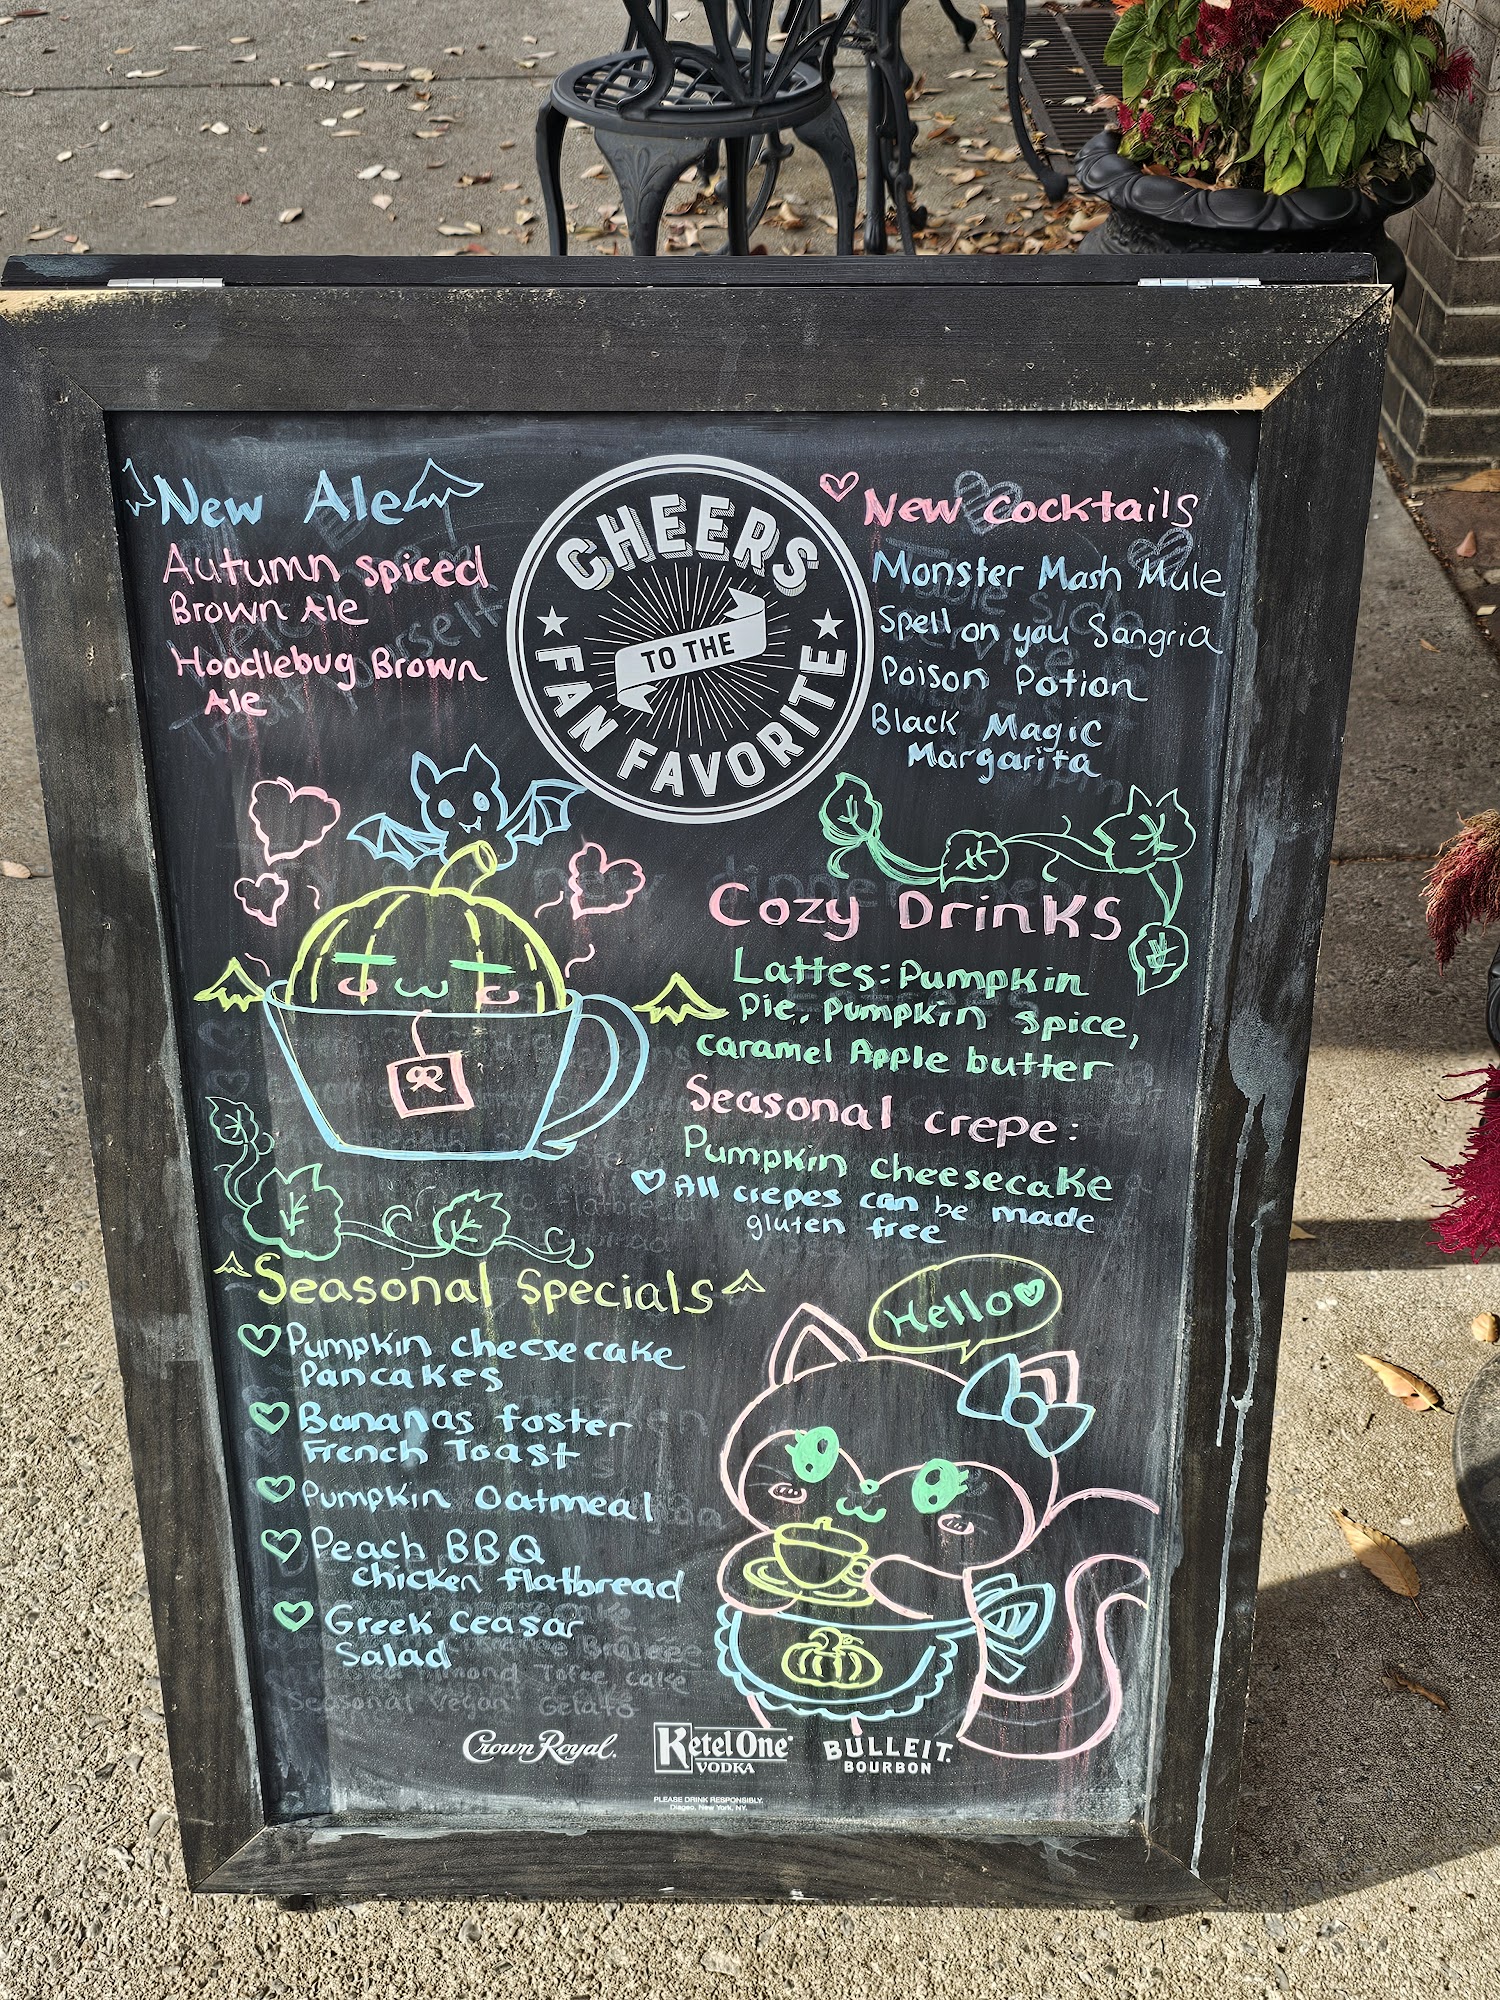 New Ale
Autumn spiced
Brown Ale
Hoodlebug Brown
Ale
CHEERS
TO THE
FAN FAVORITE
New cocktails
Monster Mash Mule
Spell on you Sangria
Poison Potion
Black Magic
Margarita
Cozy Drinks
Lattes: Pumpkin
Pie, Pumpkin spice,
caramel Apple butter
Seasonal crepe:
Pumpkin cheesecake
All crepes can be made
gluten free
Seasonal specials
Pumpkin cheesecake
Pancakes
Bananas foster
French Toast
Pumpkin Oatmeal
Peach BBQ
chicken flatbread
Greek Ceasar
Salad
Seasonal Vegan Gelato
Hello
Crown Royal.
Ketel One
VODKA
BULLEIT.
BOURBON
PLEASE DRINK RESPONSIBLY.
Diageo, New York, NY.